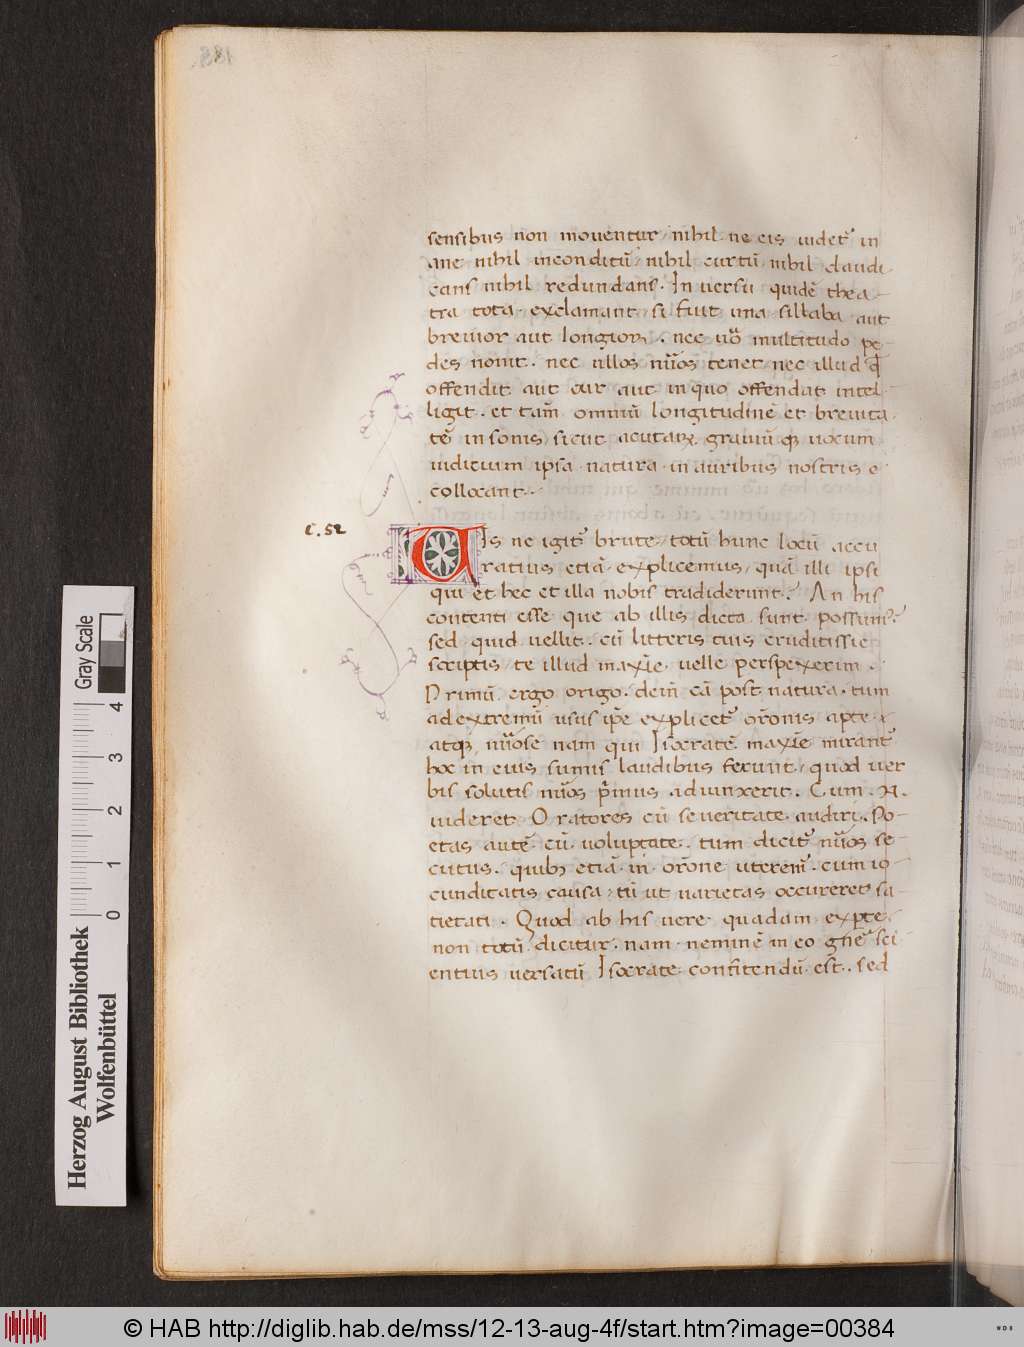 sensibus non mouentur, nihil ne eis uidet᷑ in
ane nihil inconditū, nihil curtū nihil claudi
cans nihil redundans. In uersu quidē thea-
tra tota exclamant si fuit una sillaba aut
breuior aut longior. nec uo᷑ multitudo pe-
des nouit. nec ullos nūos tenet nec illud qd̄
offendit aut cur aut in quo offendat intel-
ligit. et tam̄ omniū longitudinē et breuita
tē in sonis, sicut acutaꝝ grauiū qꝫ uocum
iudicium ipsa natura in auribus nostris
collocant.
C. 52
UIs ne igit᷑ brute, totū hunc locū accu
ratius etiā explicemus, quā illi ipsi
qui et hec et illa nobis tradiderunt. An his
contenti esse que ab illis dicta sunt possum᷒?
sed quid uellit. cū litteris tuis eruditissie
scriptis, te illud maxīe uelle perspexerim.
Primū ergo origo. dein̄ cā post natura. tum
ad extremū usus ip̄e explicet᷑ or̄onis apte
atqꝫ nūose nam qui Isocratē maxīe mirant᷑
hoc in eius sumis laudibus ferunt, quod uer
bis solutis nūos p̄mus adiunxerit. Cum .N.
uideret Oratores cū seueritate audiri. Po-
etas autē cū uoluptate. tum dicit᷑ nūos se-
cutus. quibꝫ etiā in or̄one uterem᷑. cum io-
cunditatis causa, tū ut uarietas occureret sa-
tietati. Quod ab his uere quadam exp̱te.
non totū dicitur. nam neminē in eo gn̄e sci-
entius uersatū Isocrate confitendū est. sed
Herzog August Bibliothek
Wolfenbüttel
0 1 2 3 4
Gray Scale
© HAB http://diglib.hab.de/mss/12-13-aug-4f/start.htm?image=00384